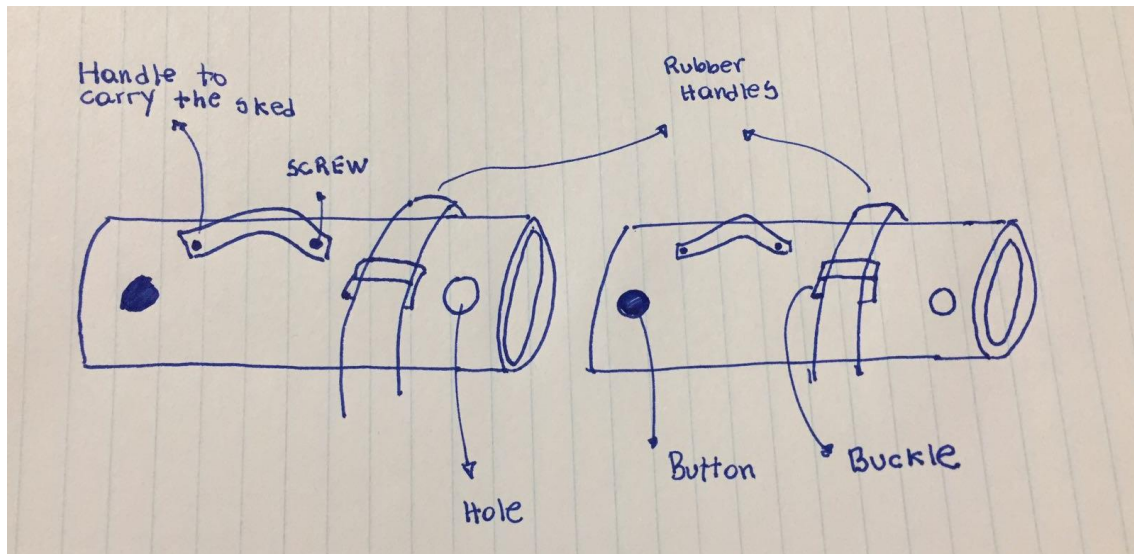 Handle to
carry the sked
SCREW
Rubber
Handles
Hole
Button
Buckle